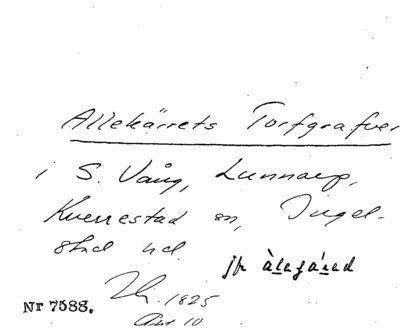 Allekärrets Torfgrafver
i S. Vång, Lunnarp,
Kverrestad sn, Ingel-
stad hd.
jfr àlagá'red
1825
Nr 7588.